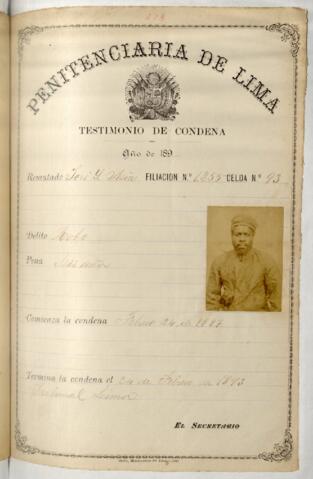 PENITENCIARIA DE LIMA
TESTIMONIO DE CONDENA
Año de 189
Rematado José FILIACIÓN N.º 1255 CELDA N.º 93
Delito Robo
Pena Seis años
Comienza la condena Febrero 24 de 1887
Termina la condena el 24 de Febrero de 1893
Tribunal
EL SECRETARIO